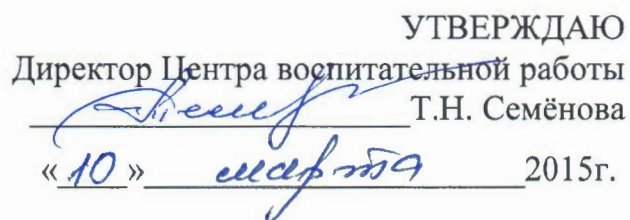 УТВЕРЖДАЮ
Директор Центра воспитательной работы
Т.Н. Семёнова
«10» марта 2015г.